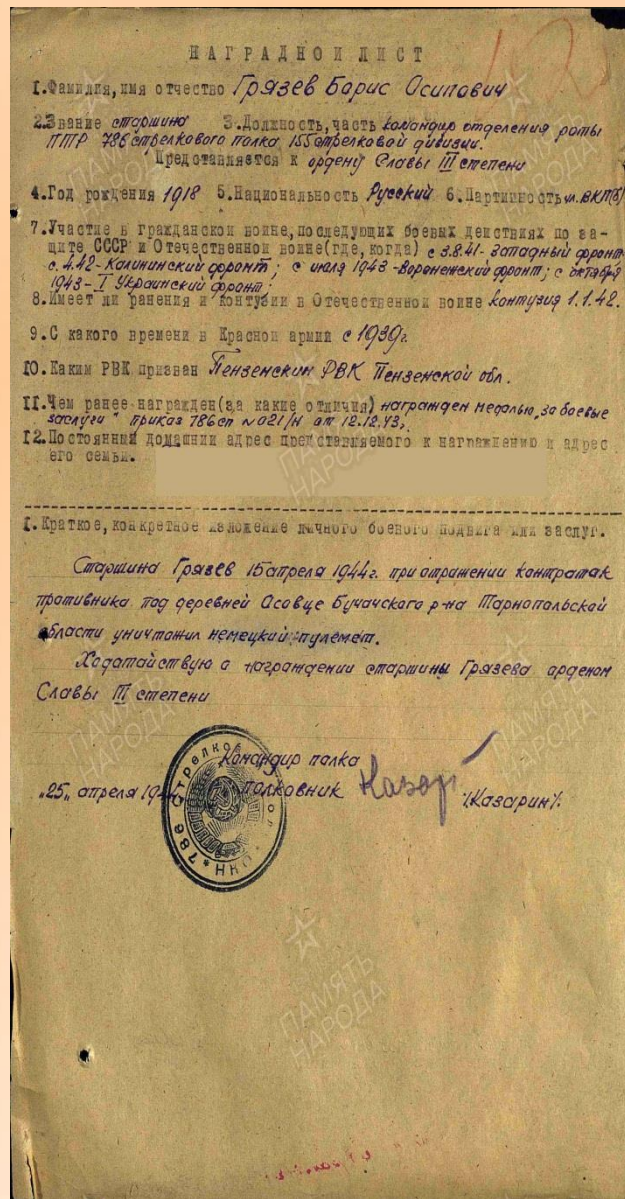 НАГРАДНОЙ ЛИСТ
1. Фамилия, имя отчество Грязев Борис Осипович
2. Звание старшина 3. Должность, часть командир отделения роты
ПТР 786 стрелкового полка 155 стрелковой дивизии.
Представляется к ордену Славы III степени
4. Год рождения 1918 5. Национальность Русский 6. Партийность чл. ВКП(б)
7. Участие в гражданской войне, последующих боевых действиях по за-
щите СССР и Отечественной войне (где, когда) с 3.8.41 - Западный фронт
с 4.42 - Калининский фронт; с июля 1943 - Воронежский фронт; с октября
1943 - I Украинский фронт;
8. Имеет ли ранения и контузии в Отечественной войне контузия 1.1.42.
9. С какого времени в Красной армии с 1939г.
10. Каким РВК призван Пензенским РВК Пензенской обл.
11. Чем ранее награжден (за какие отличия) награжден медалью „за боевые
заслуги" приказ 786 сп № 021/н от 12.12.43.
12. Постоянный домашний адрес представляемого к награждению и адрес
его семьи.
1. Краткое, конкретное изложение личного боевого подвига или заслуг.
Старшина Грязев 15 апреля 1944 г. при отражении контратак
противника под деревней Осовце Бучачского р-на Тарнопольской
области уничтожил немецкий пулемет.
Ходатайствую о награждении старшины Грязева орденом
Славы III степени
Командир полка
„25„ апреля полковник /Казарин/.
786 Стрелковый
НКО
ПАМЯТЬ НАРОДА